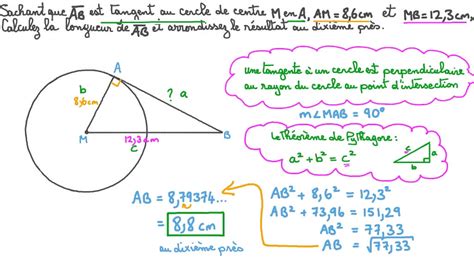 Sachant que AB est tangent au cercle de centre M en A, AM = 8,6 cm et MB = 12,3 cm,
Calculez la longueur de AB et arrondissez le résultat au dixième près.
une tangente à un cercle est perpendiculaire
au rayon du cercle au point d'intersection
m∠MAB = 90°
A
b
8,6cm
? a
M
12,3cm
c
B
le théorème de Pythagore :
a² + b² = c²
c
a
b
AB = 8,79374...
= 8,8 cm
au dixième près
AB² + 8,6² = 12,3²
AB² + 73,96 = 151,29
AB² = 77,33
AB = √77,33